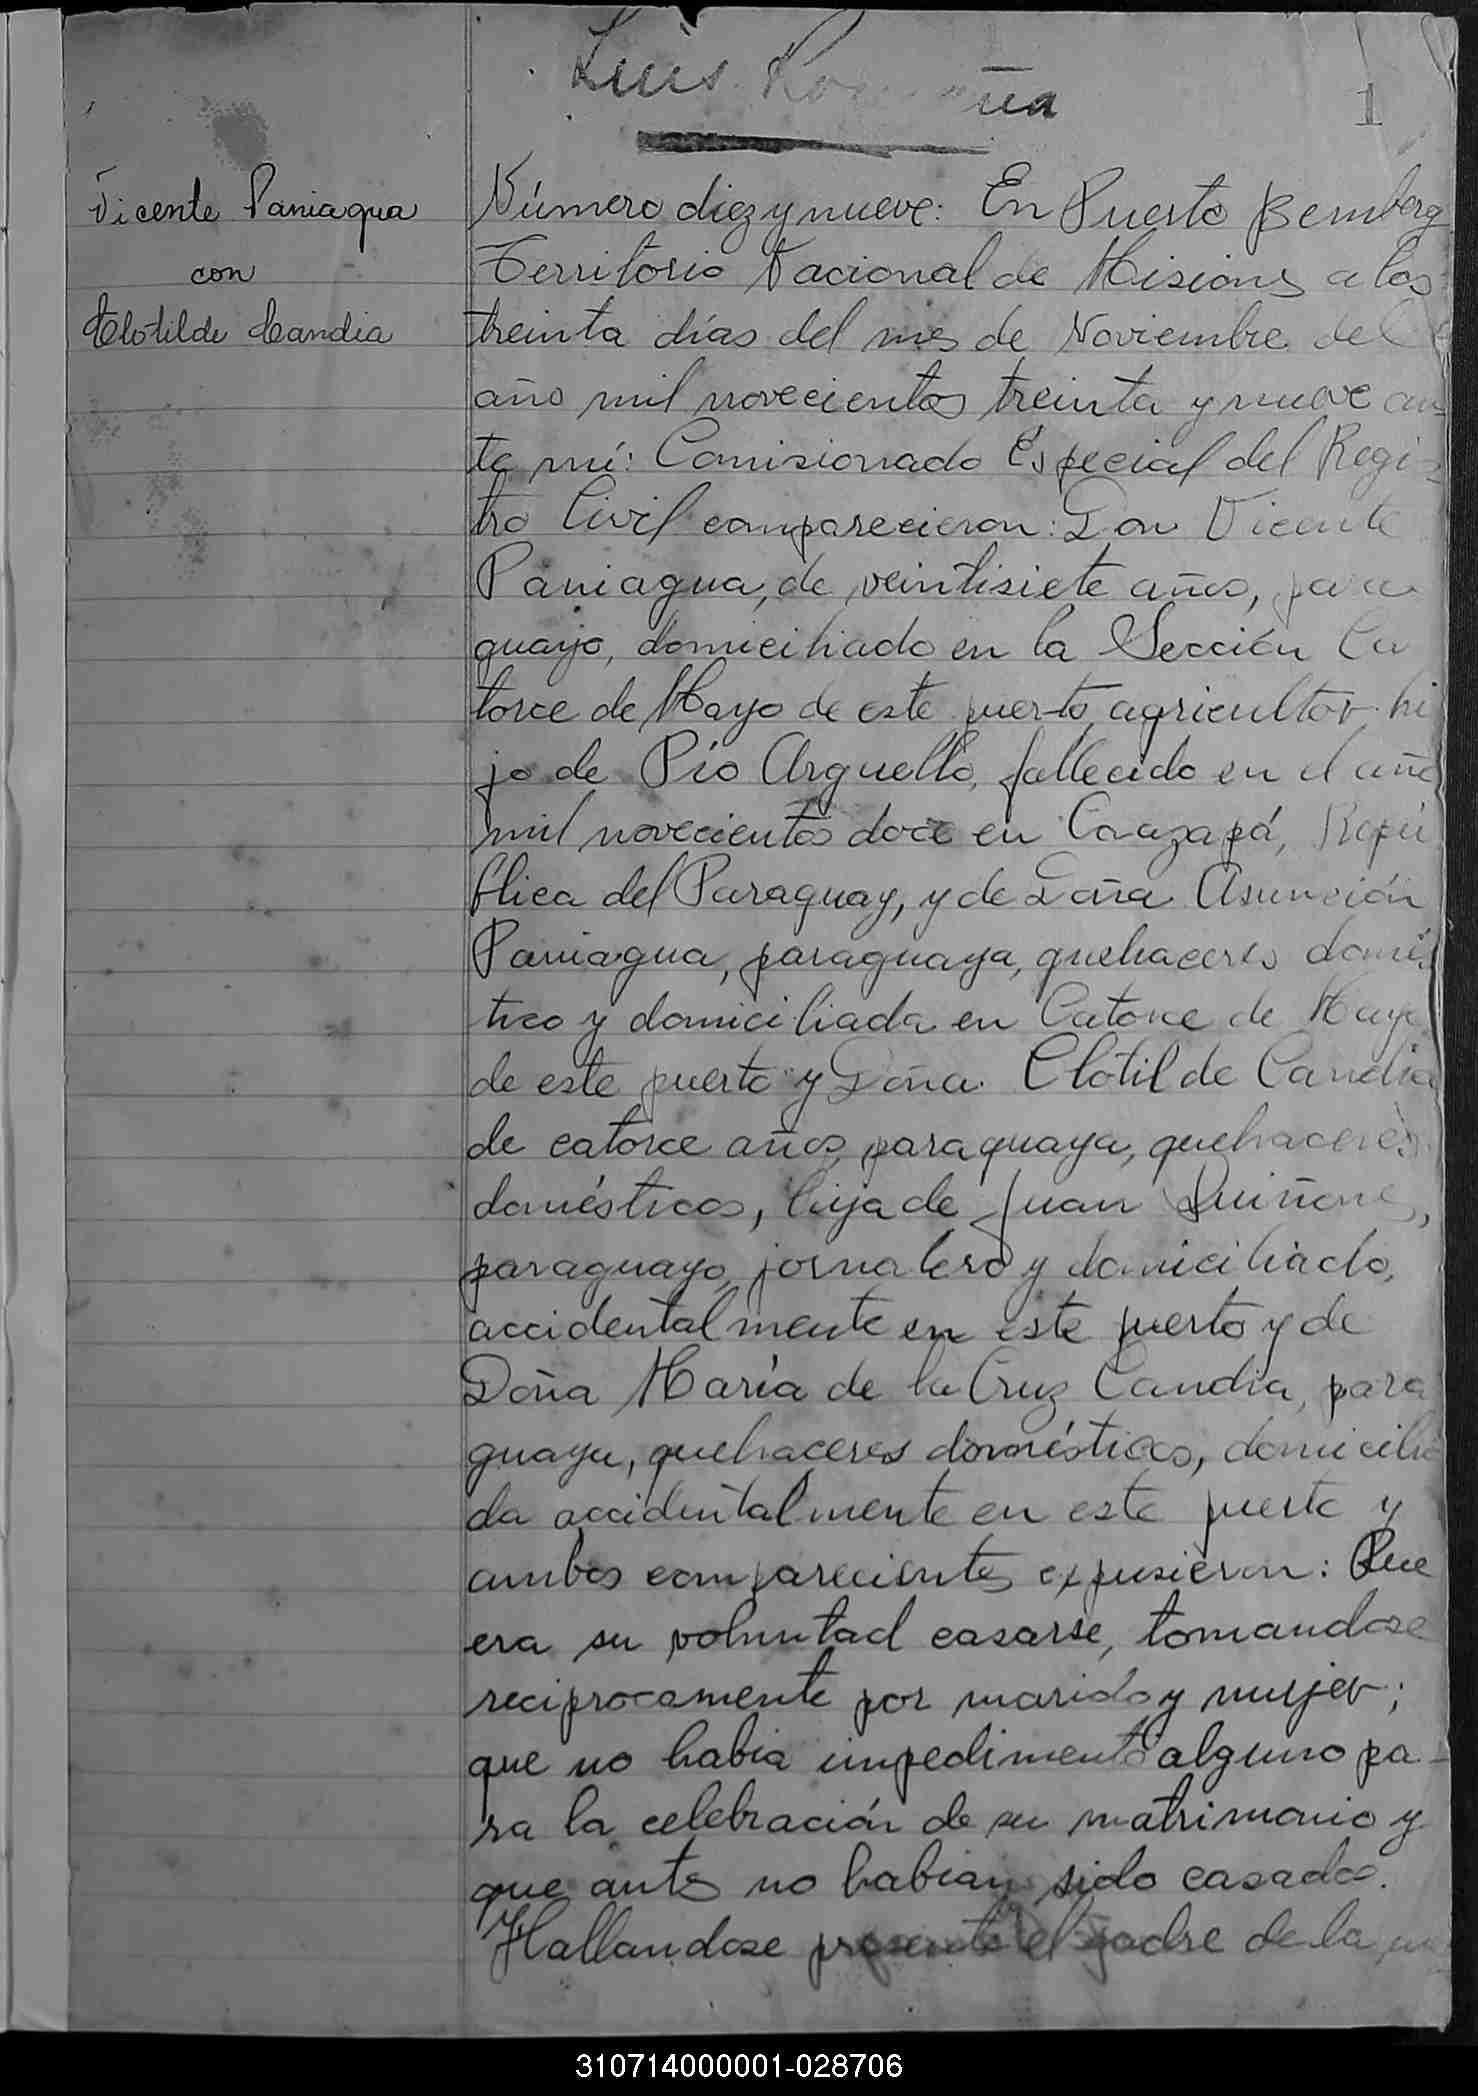 Luis
1
Vicente Paniagua
con
Clotilde Candia
Número diez y nueve: En Puerto Bemberg
Territorio Nacional de Misiones a los
treinta días del mes de Noviembre del
año mil novecientos treinta y nueve an-
te mí: Comisionado Especial del Regis
tro Civil comparecieron: Don Vicente
Paniagua, de veintisiete años, para
guayo, domiciliado en la Sección Ca
torce de Mayo de este puerto, agricultor hi
jo de Pío Arguello, fallecido en el año
mil novecientos doce en Caazapá, Repú
blica del Paraguay, y de Doña Asunción
Paniagua, paraguaya, quehaceres domés
tico y domiciliada en Catorce de Mayo
de este puerto y Doña Clotilde Candia
de catorce años, paraguaya, quehaceres
domésticos, hija de Juan Quiñones,
paraguayo, jornalero y domiciliado,
accidentalmente en este puerto y de
Doña María de la Cruz Candia, para
guaya, quehaceres domésticos, domicilia
da accidentalmente en este puerto y
ambos comparecientes expusieron: Que
era su voluntad casarse, tomandose
reciprocamente por marido y mujer;
que no habia impedimento alguno pa-
ra la celebración de su matrimonio y
que antes no habian sido casados.
Hallandose presente el padre de la
310714000001-028706